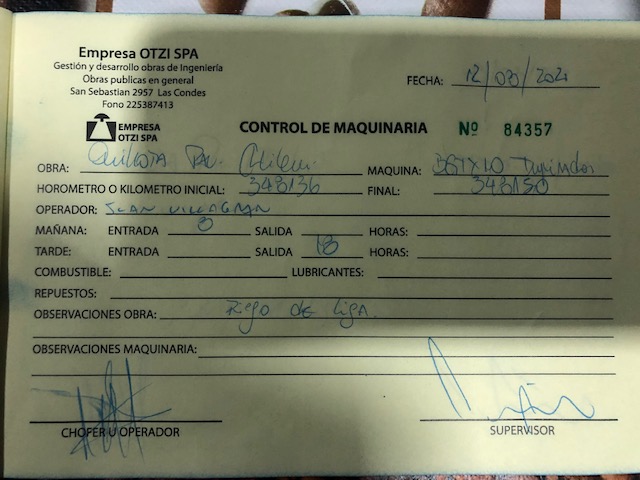 Empresa OTZI SPA
Gestión y desarrollo obras de Ingeniería
Obras publicas en general
San Sebastian 2957 Las Condes
Fono 225387413
FECHA: 12/08/2021
EMPRESA
OTZI SPA
CONTROL DE MAQUINARIA Nº 84357
OBRA: MAQUINA:
HOROMETRO O KILOMETRO INICIAL: 348136 FINAL: 348150
OPERADOR: JUAN VILLAGRAN
MAÑANA: ENTRADA 8 SALIDA HORAS:
TARDE: ENTRADA SALIDA 18 HORAS:
COMBUSTIBLE: LUBRICANTES:
REPUESTOS:
OBSERVACIONES OBRA: Riego de liga.
OBSERVACIONES MAQUINARIA:
CHOFER U OPERADOR SUPERVISOR